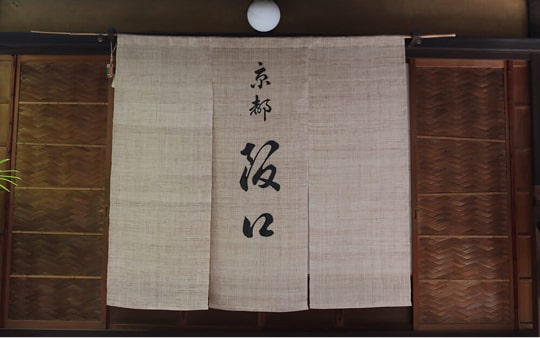 京都
阪口